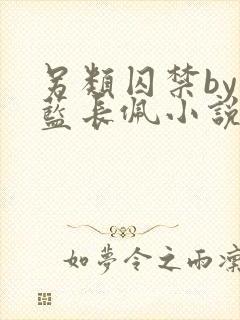 另類囚禁by
藍長佩小說
如夢令之雨凜